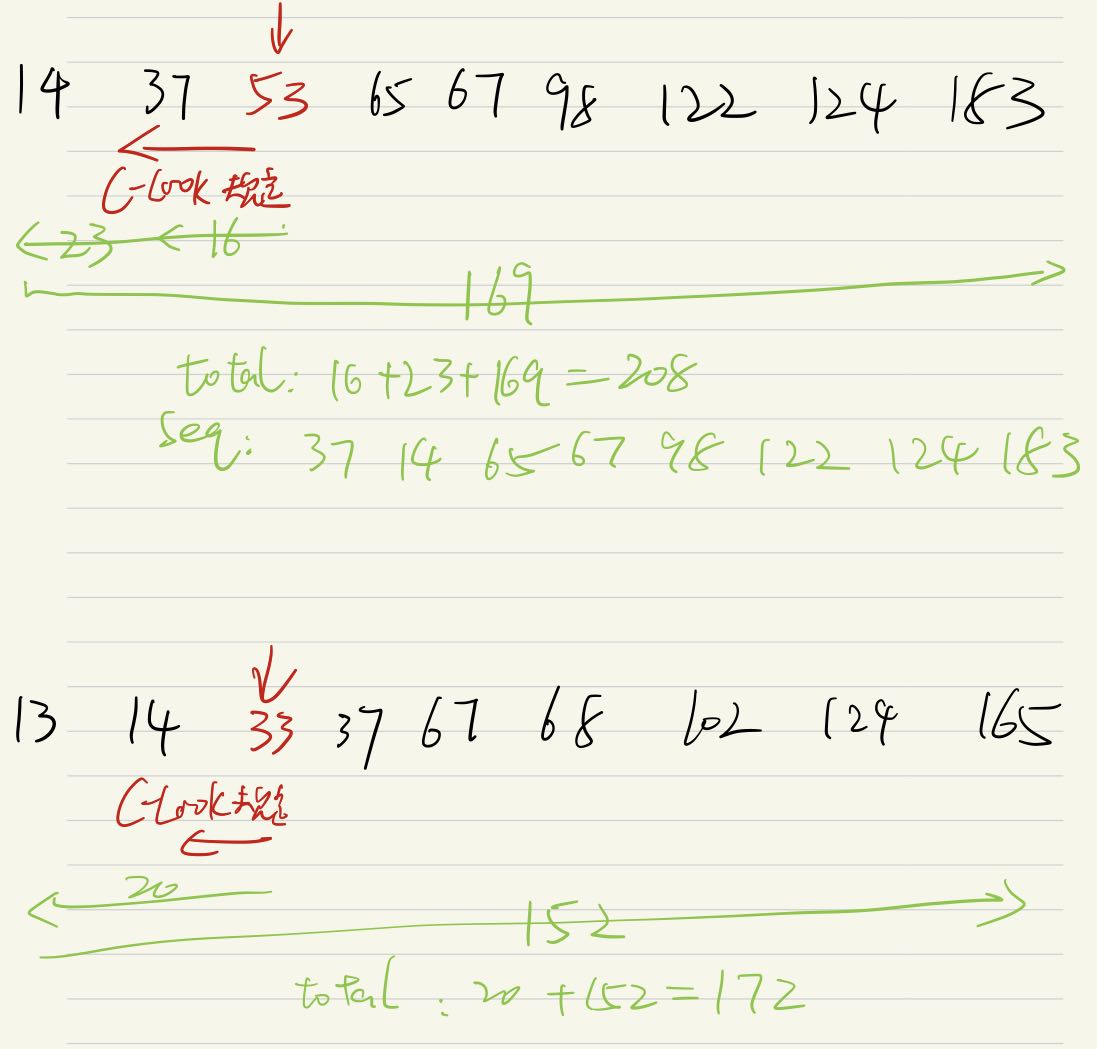 14 37 53 65 67 98 122 124 183
C-Look 规定
23 16
169
total: 16+23+169=208
seq: 37 14 65 67 98 122 124 183
13 14 33 37 67 68 102 124 165
C-Look 规定
20
152
total: 20+152=172